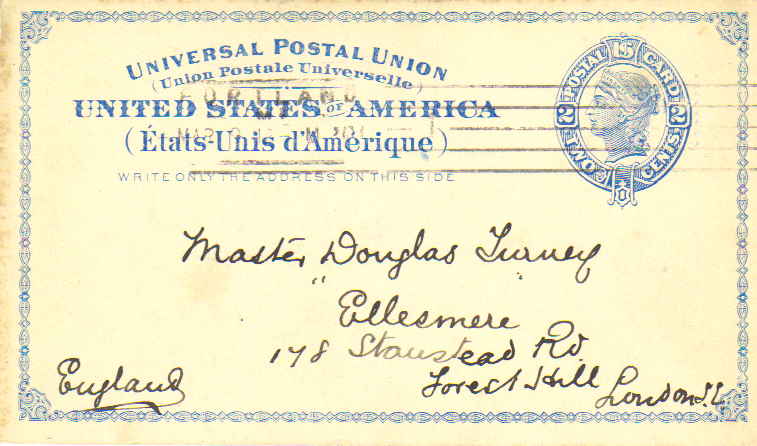 UNIVERSAL POSTAL UNION
(Union Postale Universelle)
PORTLAND
UNITED STATES OF AMERICA
ME
(États-Unis d'Amérique)
WRITE ONLY THE ADDRESS ON THIS SIDE
POSTAL CARD
2 TWO CENTS 2
Master Douglas Turney
"        "
Ellesmere
178 Stanstead Rd.
Forest Hill
London S.E.
England